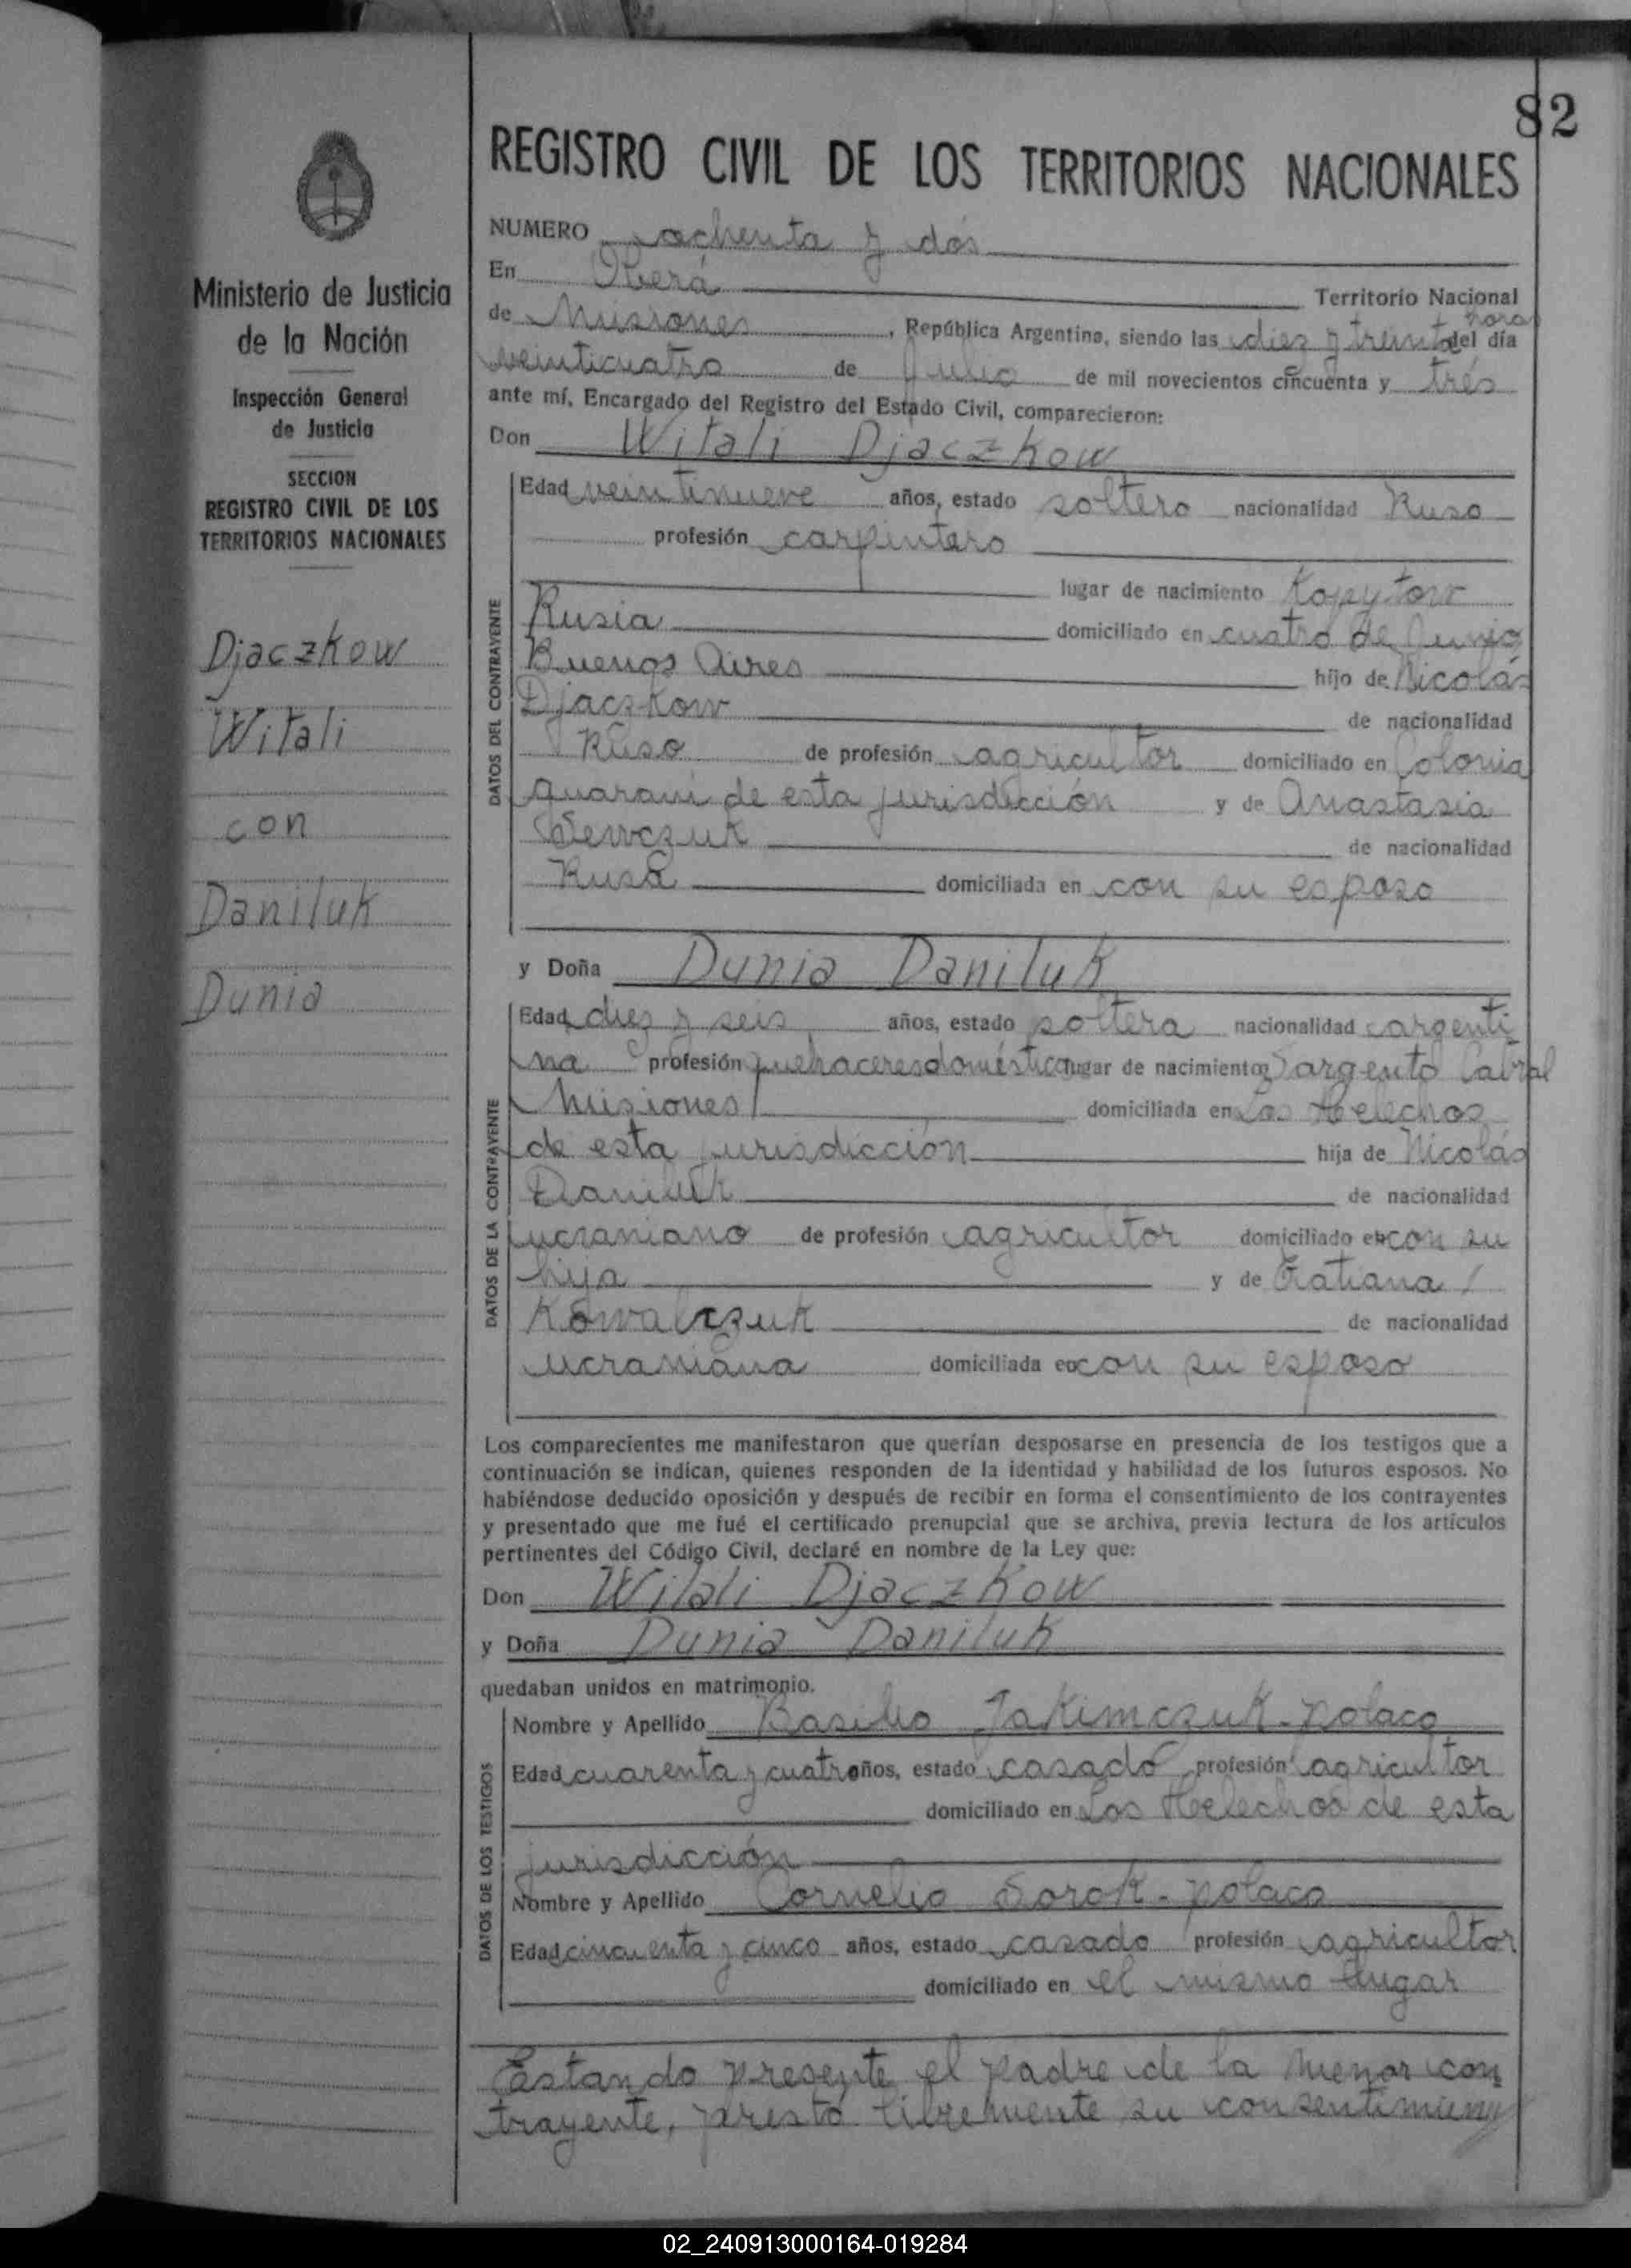 82
REGISTRO CIVIL DE LOS TERRITORIOS NACIONALES
Ministerio de Justicia
de la Nación
Inspección General
de Justicia
SECCION
REGISTRO CIVIL DE LOS
TERRITORIOS NACIONALES
Djaczkow
Witali
con
Daniluk
Dunia
NUMERO ochenta y dós
En Oberá Territorio Nacional
de Misiones, República Argentina, siendo las diez y treinta horas del día
veinticuatro de Julio de mil novecientos cincuenta y trés
ante mí, Encargado del Registro del Estado Civil, comparecieron:
Don Witali Djaczkow
DATOS DEL CONTRAYENTE
Edad veintinueve años, estado soltero nacionalidad Ruso
profesión carpintero
lugar de nacimiento Kopytow
Rusia domiciliado en cuatro de Junio
Buenos Aires hijo de Nicolás
Djaczkow de nacionalidad
Ruso de profesión agricultor domiciliado en Colonia
Guaraní de esta jurisdicción y de Anastasia
de nacionalidad
Rusa domiciliada en con su esposo
y Doña Dunia Daniluk
DATOS DE LA CONTRAYENTE
Edad diez y seis años, estado soltera nacionalidad argenti
na profesión quehaceres domésticos lugar de nacimiento Sargento Cabral
Misiones domiciliada en Los Helechos
de esta jurisdicción hija de Nicolás
Daniluk de nacionalidad
ucraniano de profesión agricultor domiciliado en con su
hija y de Tatiana
Kowalczuk de nacionalidad
ucraniana domiciliada en con su esposo
Los comparecientes me manifestaron que querían desposarse en presencia de los testigos que a
continuación se indican, quienes responden de la identidad y habilidad de los futuros esposos. No
habiéndose deducido oposición y después de recibir en forma el consentimiento de los contrayentes
y presentado que me fué el certificado prenupcial que se archiva, previa lectura de los artículos
pertinentes del Código Civil, declaré en nombre de la Ley que:
Don Witali Djaczkow
y Doña Dunia Daniluk
quedaban unidos en matrimonio.
DATOS DE LOS TESTIGOS
Nombre y Apellido Basilio Jakimczuk - polaco
Edad cuarenta y cuatro años, estado casado profesión agricultor
domiciliado en Los Helechos de esta
jurisdicción
Nombre y Apellido Cornelio Sorok - polaco
Edad cincuenta y cinco años, estado casado profesión agricultor
domiciliado en el mismo lugar
Estando presente el padre de la menor con
trayente, prestó libremente su consentimien
02_240913000164-019284